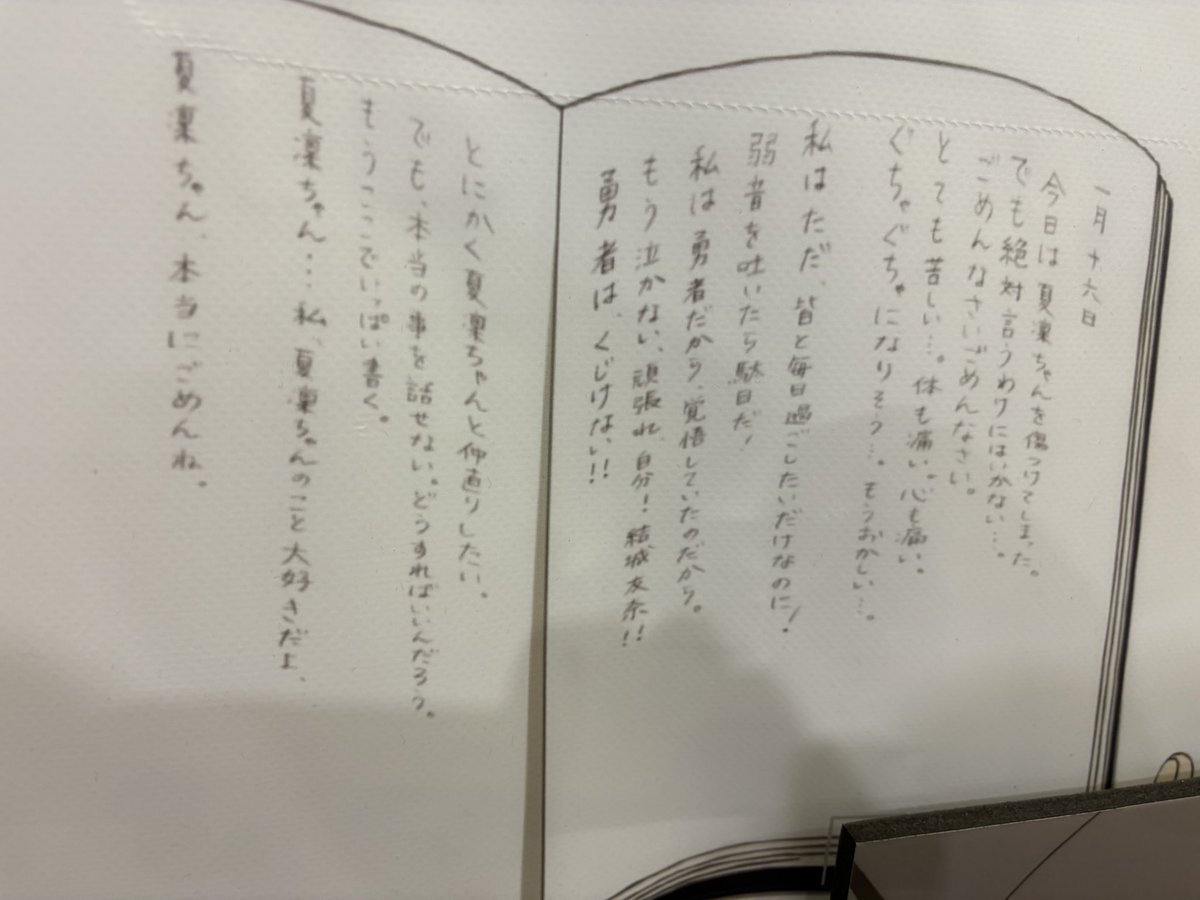 一月十六日
今日は夏凜ちゃんを傷つけてしまった。
でも絶対言うわけにはいかない…。
ごめんなさいごめんなさい。
とても苦しい…。体も痛い。心も痛い。
ぐちゃぐちゃになりそう…。もうおかしい…。
私はただ、皆と毎日過ごしたいだけなのに！
弱音を吐いたら駄目だ！
私は勇者だから、覚悟していたのだから。
もう泣かない、頑張れ、自分！結城友奈！！
勇者は、くじけない！！
とにかく夏凜ちゃんと仲直りしたい。
でも、本当の事を話せない。どうすればいいんだろう。
もうここでいっぱい書く。
夏凜ちゃん…私、夏凜ちゃんのこと大好きだよ、
夏凜ちゃん、本当にごめんね。